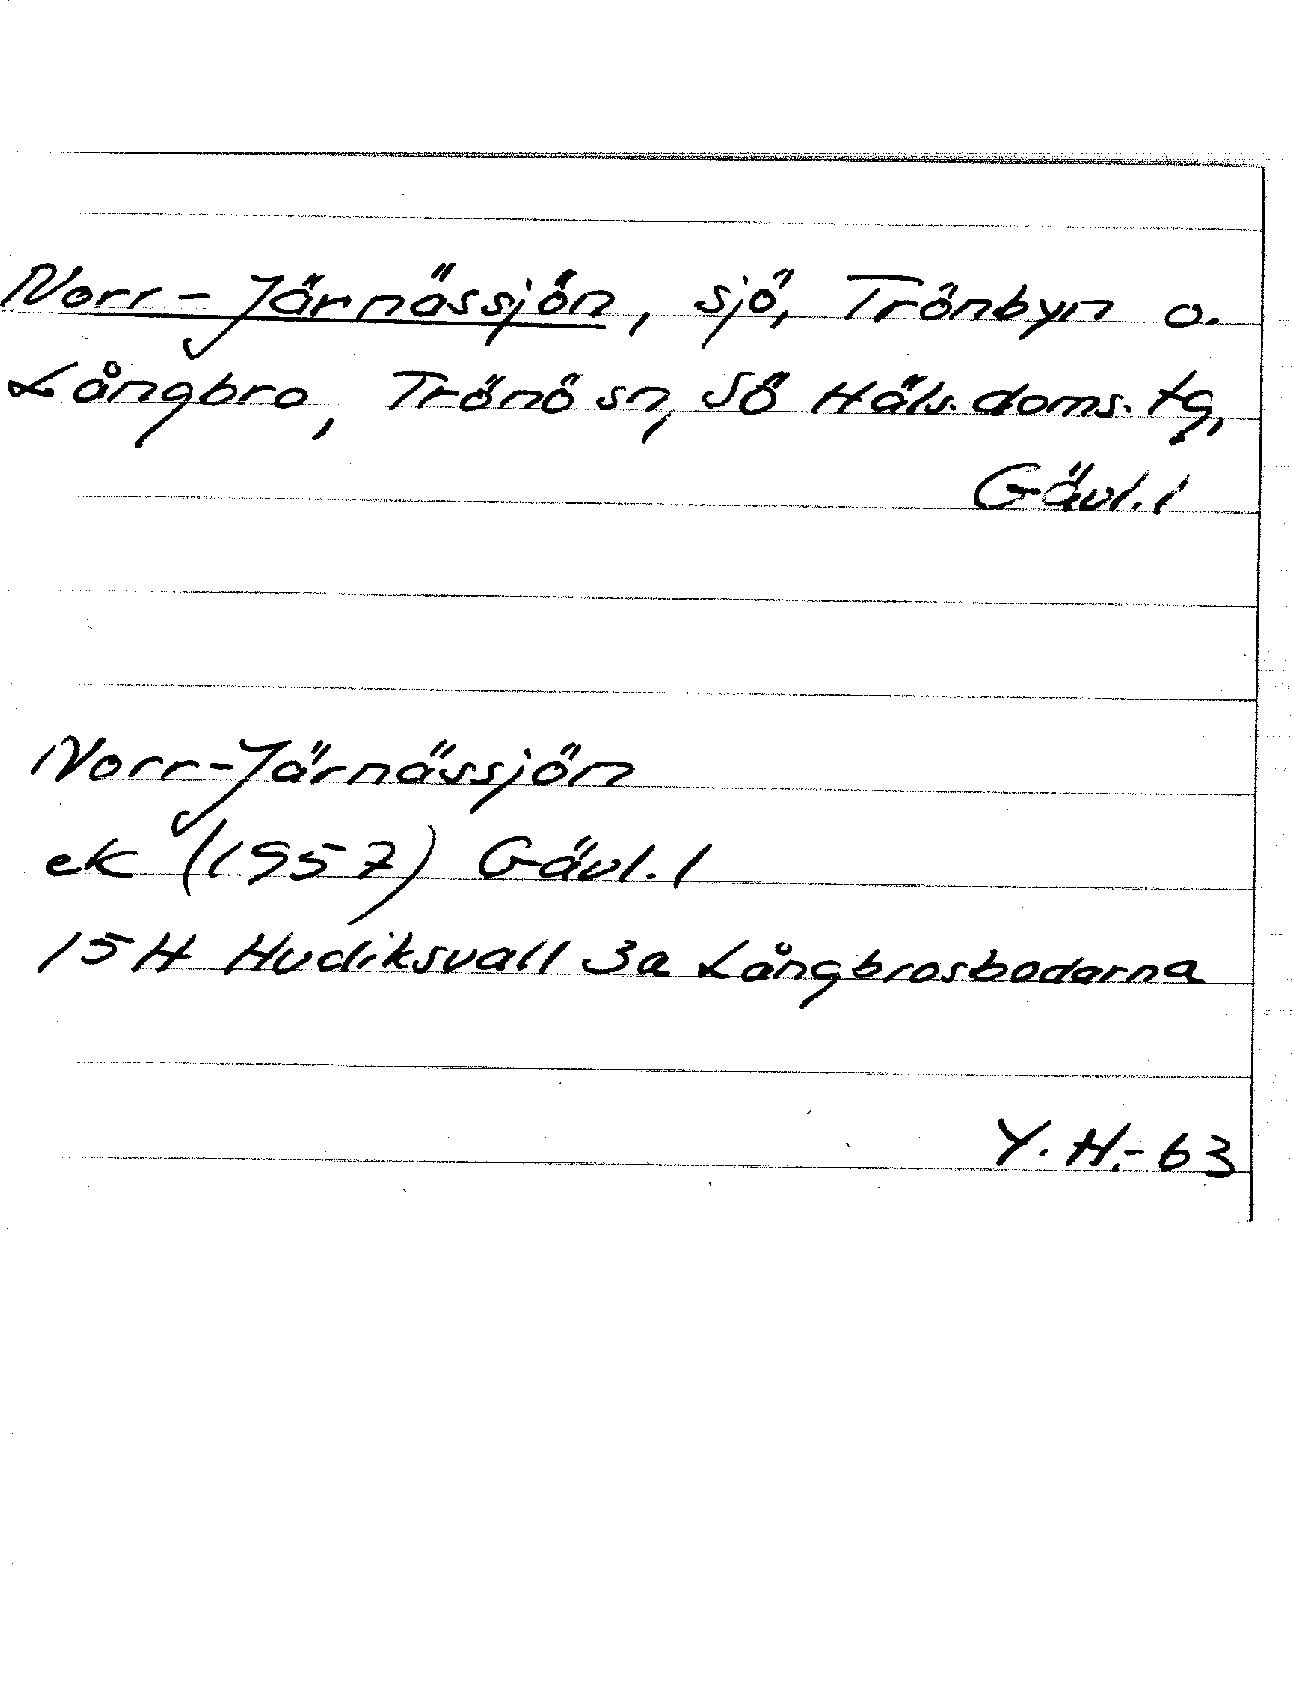 Norr-Järnässjön, sjö, Trönbyn o.
Långbro, Trönö sn, Sö Häls. doms. tg,
Gävl. l
Norr-Järnässjön
ek (1957) Gävl. l
15H Hudiksvall 3a Långbrosbodarna
Y. H.-63